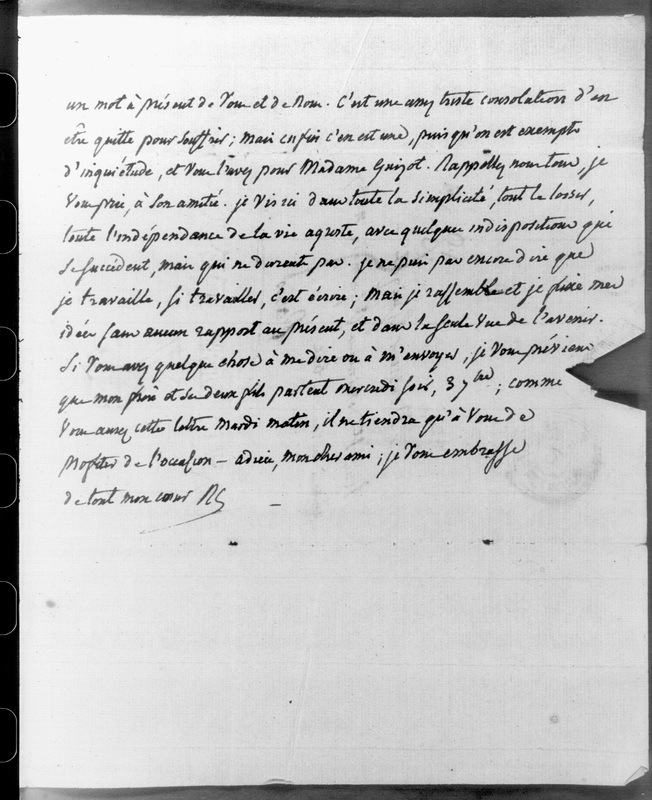 un mot à présent de vous et de nous. C'est une assez triste consolation d'en
être quitte pour souffrir; mais enfin c'en est une, puisqu'on est exempt
d'inquiétude, et vous l'avez pour Madame Guizot. Rappellez nous tous, je
vous prie, à son amitié. je vis ici dans toute la simplicité, tout le loisir,
toute l'indépendance de la vie agreste, avec quelques indispositions qui
se succèdent, mais qui ne durent pas. je ne puis pas encore dire que
je travaille, si travailler, c'est écrire; mais je rassemble et je fixe mes
idées sans aucun rapport au présent, et dans la seule vue de l'avenir.
Si vous avez quelque chose à me dire ou à m'envoyer, je vous préviens
que mon frère et ses deux fils partent mercredi soir, 3 7bre; comme
vous aurez cette lettre Mardi matin, il ne tiendra qu'à vous de
profiter de l'occasion – adieu, mon cher ami; je vous embrasse
de tout mon cœur